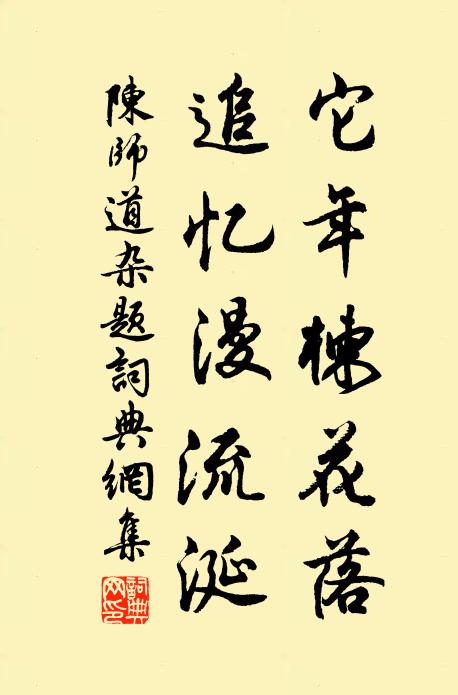 它年楝花落
追忆漫流涎
陳師道杂题詞典網集
詞典网印